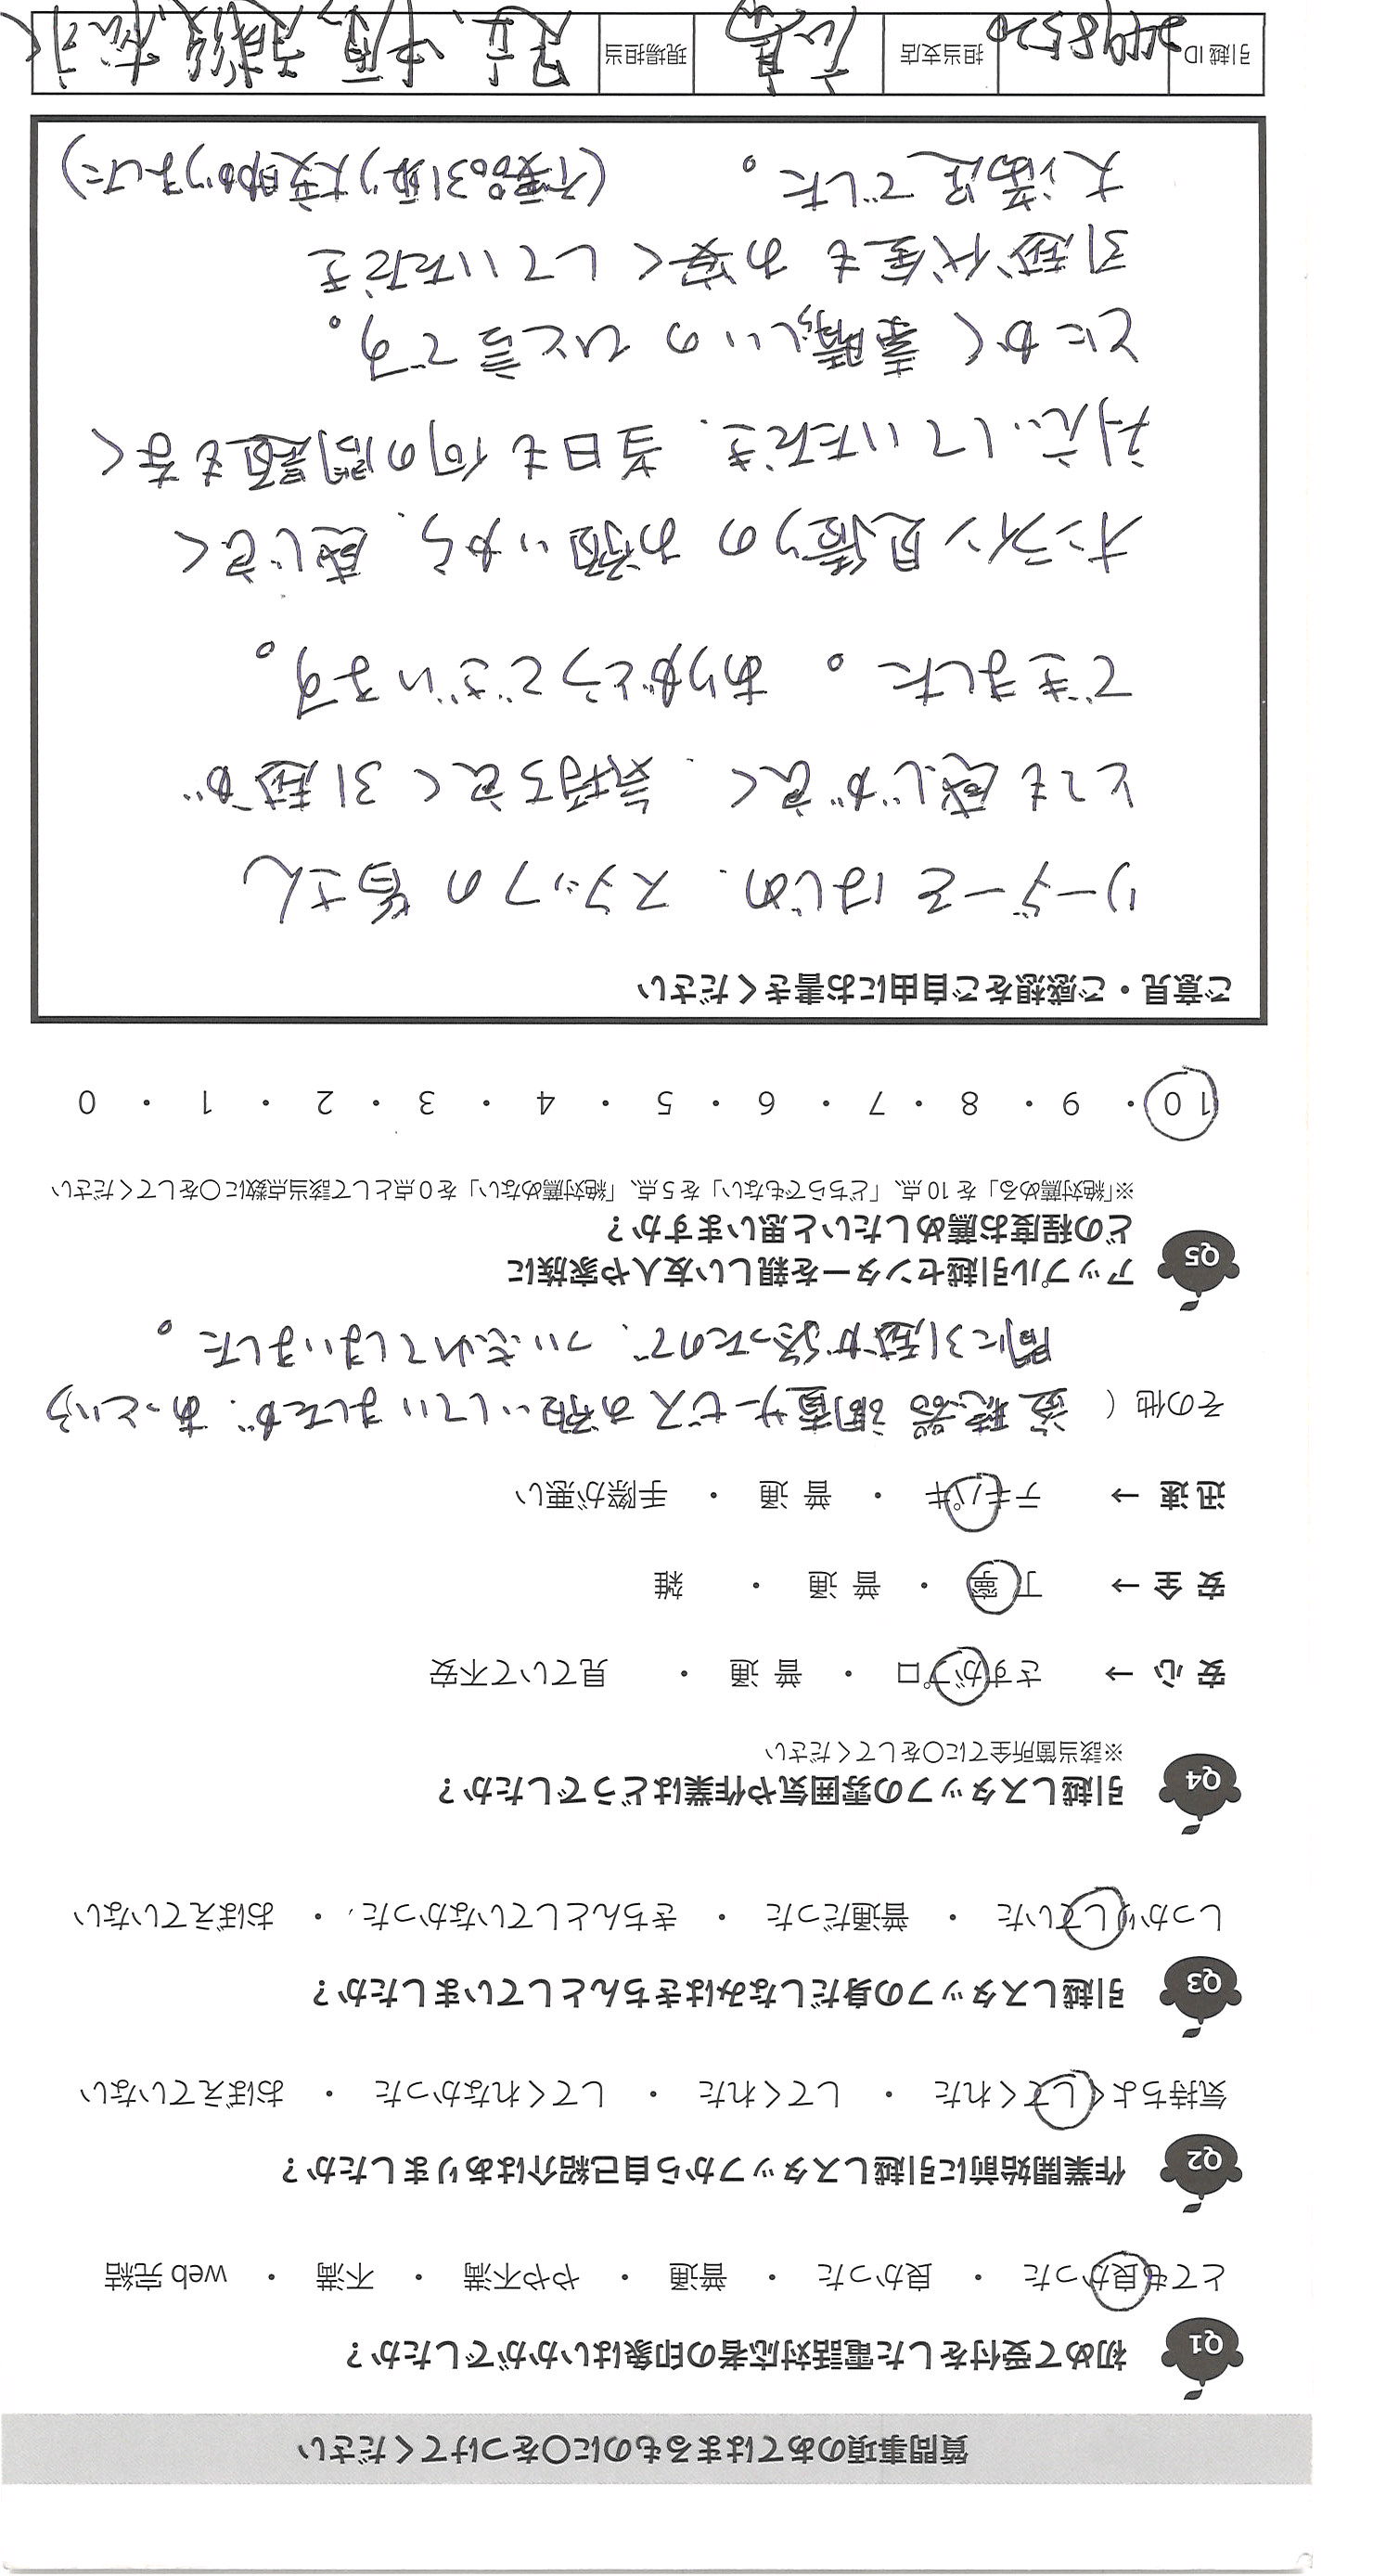 質問事項のあてはまるものに〇をつけてください
Q1 初めて受付をした電話対応者の印象はいかがでしたか？
とても良かった ・ 良かった ・ 普通 ・ やや不満 ・ 不満 ・ web 完結
Q2 作業開始前に引越しスタッフから自己紹介はありましたか？
気持ちよくしてくれた ・ してくれた ・ してくれなかった ・ おぼえていない
Q3 引越しスタッフの身だしなみはきちんとしていましたか？
しっかりしていた ・ 普通だった ・ きちんとしていなかった ・ おぼえていない
Q4 引越しスタッフの雰囲気や作業はどうでしたか？
※該当箇所全てに〇をしてください
安 心 → さすがプロ ・ 普 通 ・ 見ていて不安
安 全 → 丁 寧 ・ 普 通 ・ 雑
迅 速 → テキパキ ・ 普 通 ・ 手際が悪い
その他 ( 盗聴器調査サービスお願いしていましたが、あっという
間に引越が終ったので、つい忘れてしまいました。
Q5 アップル引越センターを親しい友人や家族に
どの程度お薦めしたいと思いますか？
※「絶対薦める」を 10 点、「どちらでもない」を 5 点、「絶対薦めない」を 0 点として該当点数に〇をしてください
10 ・ 9 ・ 8 ・ 7 ・ 6 ・ 5 ・ 4 ・ 3 ・ 2 ・ 1 ・ 0
ご意見・ご感想をご自由にお書きください
リーダーをはじめ、スタッフの皆さん
とても感じが良く、気持ち良く引越が
できました。ありがとうございます。
オンライン見積りのお願いから、感じ良く
対応していただき、当日も何の問題もなく
とにかく素晴しいのひと言です。
引越代金もお安くしていただき
大満足でした。 (不要品引取り大変助かりました)
引越 ID 担当支店 現場担当